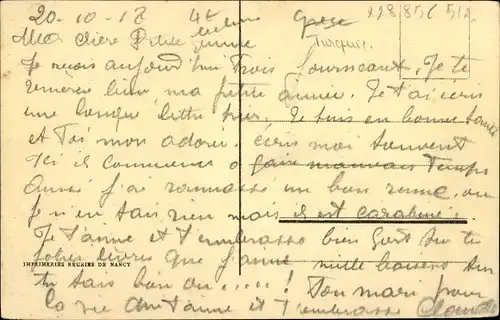 20-10-17 4h Grèce 128 856 518
Turquie
Ma chère Petite femme
Je reçois aujourd'hui Trois Journeaux, Je te
remercie bien ma petite aimée. Je t'ai écris
une longue lettre hier. Je suis en bonne santé
et Toi mon adorée. écris moi souvent
Ici il commence à faire mauvais Temps
Aussi j'ai rammassé un bon rume, ou
je n'en sais rien mais il est carabiné.
Je t'aime et t'embrasse bien fort sur tes
jolies lèvres que j'aime mille baisers sur
IMPRIMERIES RÉUNIES DE NANCY
tu sais bien ou.....! Ton mari pour
la vie qui t'aime et t'embrasse